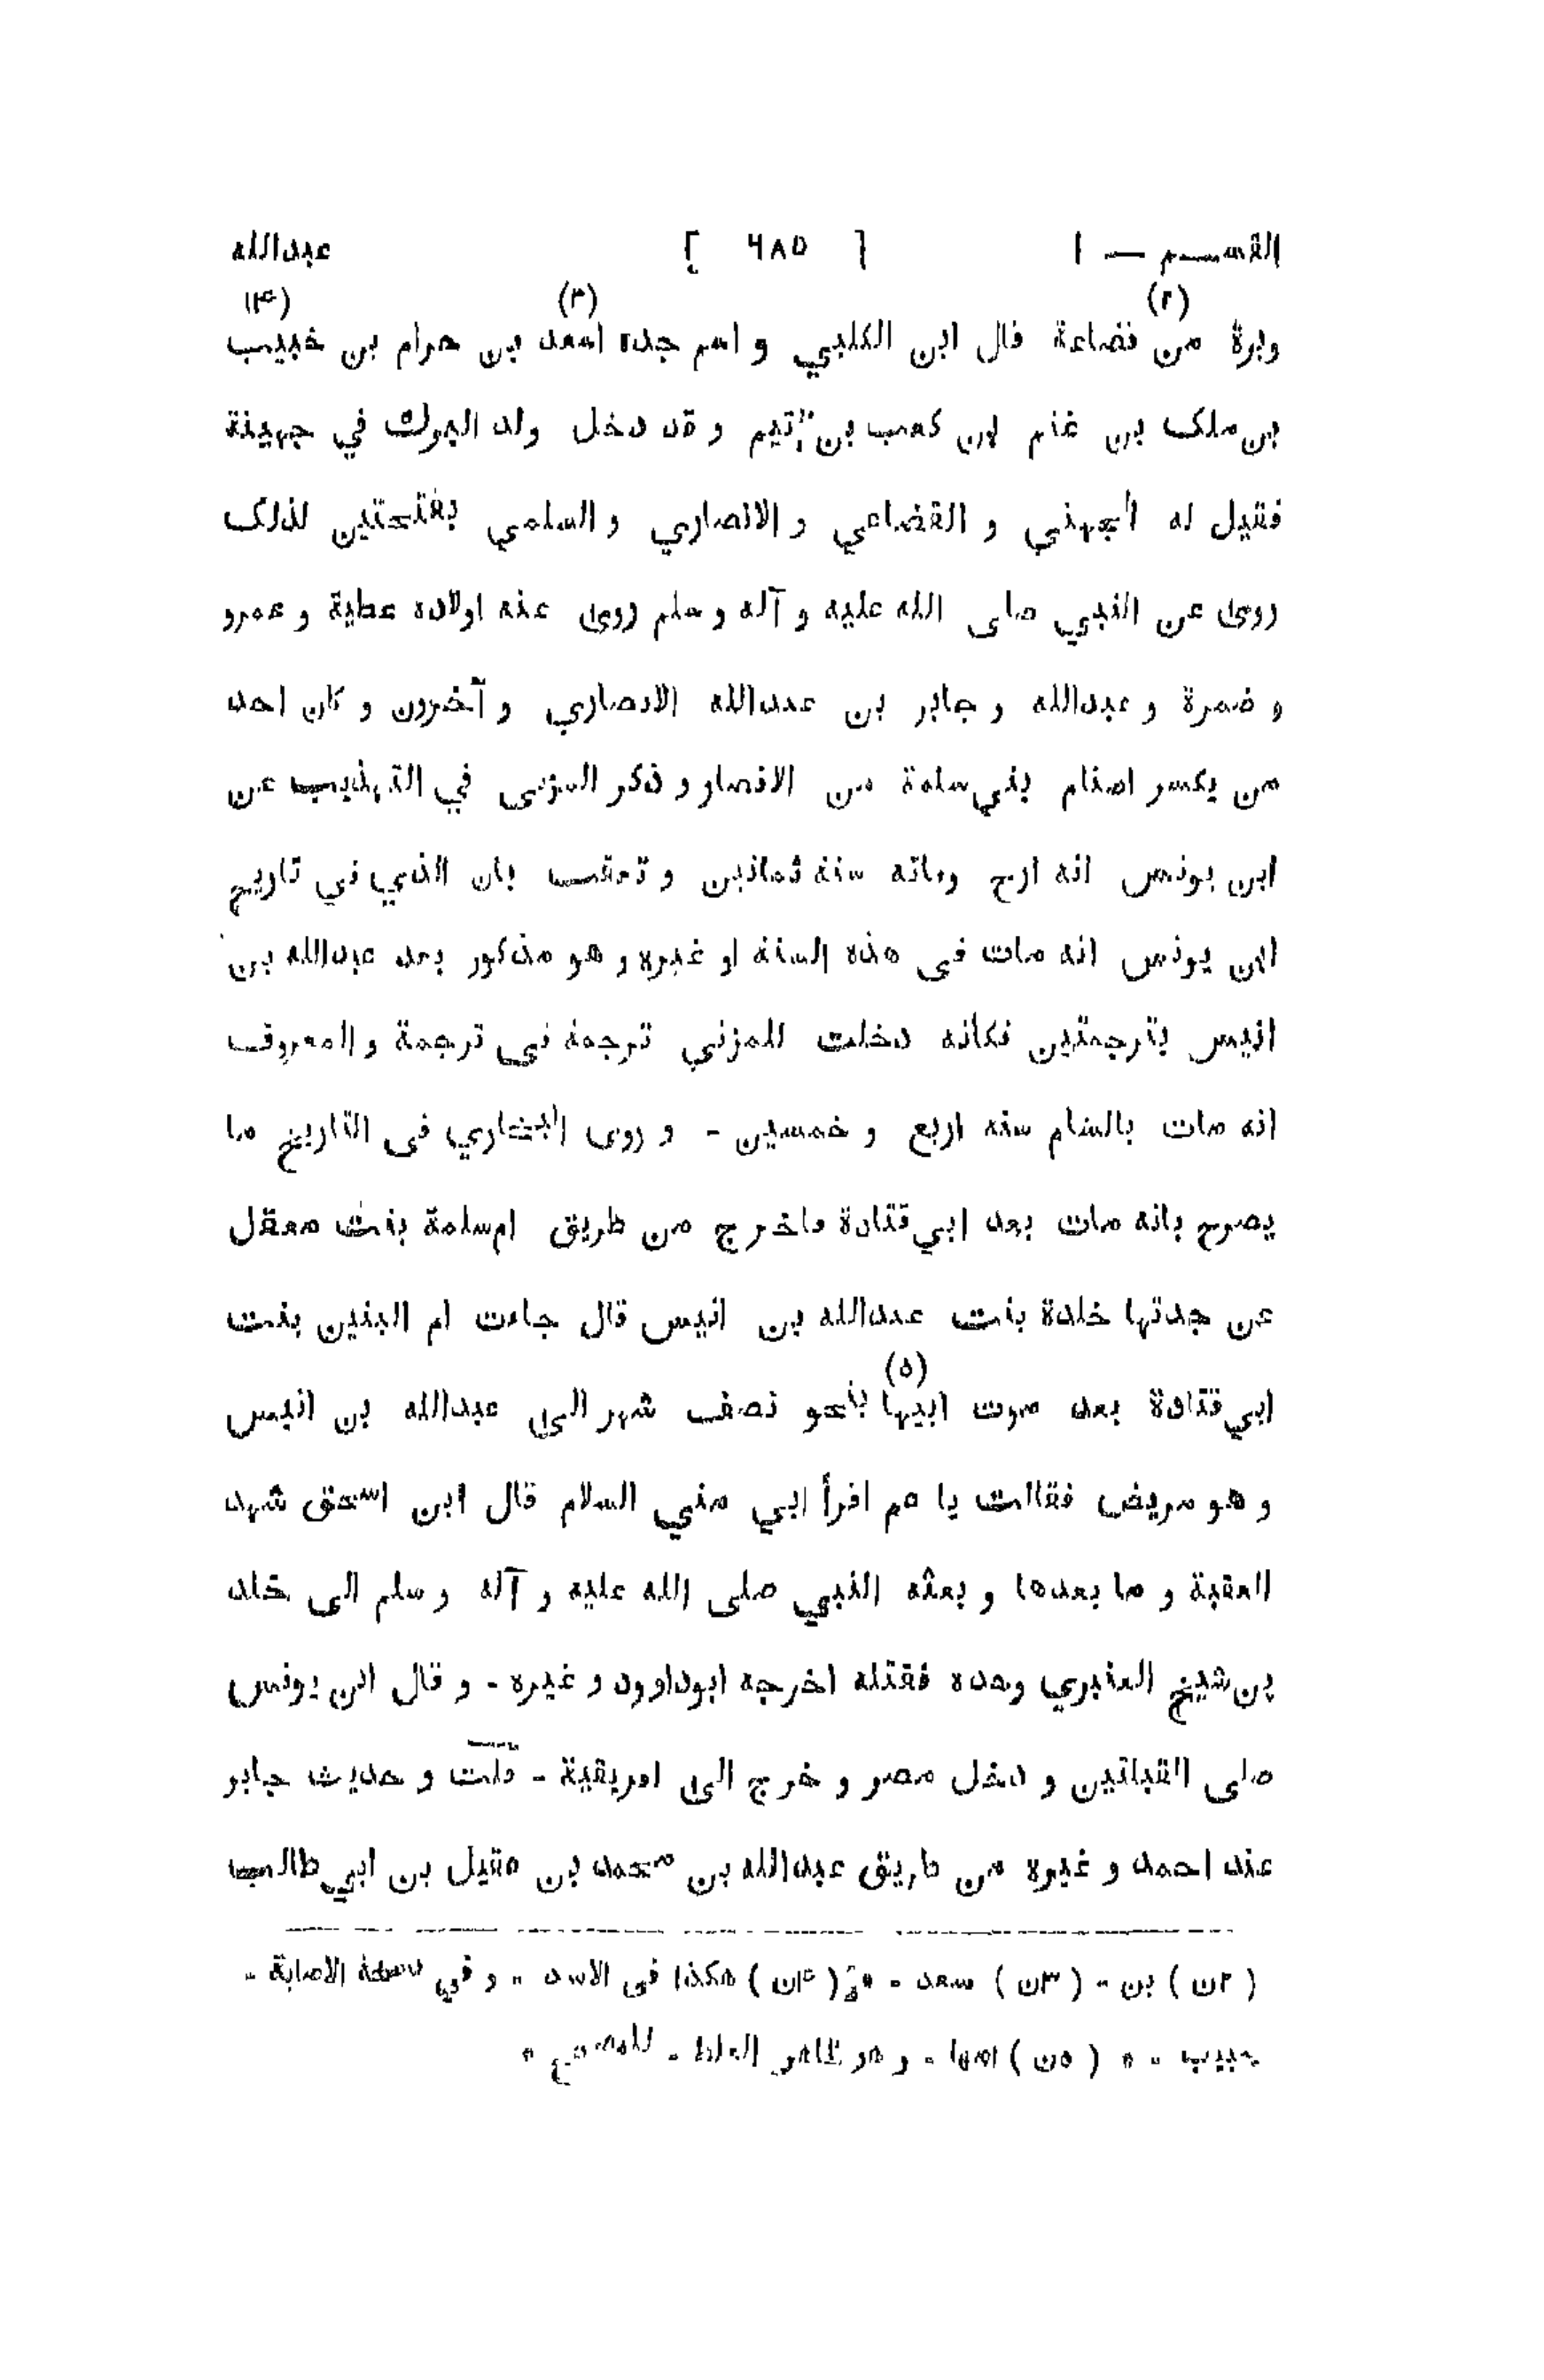 القســـم — ١ [ ٦٨٥ ] عبدالله
(٢) (٣) (۴)
وبرة من قضاعة قال ابن الكلبي و اسم جده اسعد بن حرام بن خبيب
بن ملک بن غنم بن كعب بن تيم و قد دخل ولد البرك في جهينة
فقيل له الجهني و القضاعي و الانصاري و السلمي بفتحتين لذلک
روى عن النبي صلى الله عليه و آله و سلم روى عنه اولاده عطية و عمرو
و ضمرة و عبدالله و جابر بن عبدالله الانصاري و آخرون و كان احد
من يكسر اصنام بني سلمة من الانصار و ذكر المزى في التهذيب عن
ابن يونس انه ارخ وفاته سنة ثمانين و تعقب بان الذي في تاريخ
ابن يونس انه مات فى هذه السنة او غيره و هو مذكور بعد عبدالله بن
انيس بترجمتين فكانه دخلت للمزني ترجمة فى ترجمة و المعروف
انه مات بالشام سنه اربع و خمسين - و روى البخاري فى التاريخ ما
يصرح بانه مات بعد ابي قتادة فاخرج من طريق ام سلمة بنت معقل
عن جدتها خلدة بنت عبدالله بن انيس قال جاءت ام البنين بنت
(٥)
ابي قتادة بعد موت ابيها بنحو نصف شهر الى عبدالله بن انيس
و هو مريض فقالت يا عم اقرأ ابي مني السلام قال ابن اسحق شهد
العقبة و ما بعدها و بعثه النبي صلى الله عليه و آله و سلم الى خلد
بن شيخ العنبري وحده فقتله اخرجه ابوداوود و غيره - و قال ابن يونس
صلى القبلتين و دخل مصر و خرج الى افريقية - قلت و حديث جابر
عند احمد و غيره من طريق عبدالله بن محمد بن عقيل بن ابي طالب
( ٢ن ) بن - ( ٣ن ) سعد - ( ۴ن ) هكذا فى الاسد - و في نسخة الاصابة -
حبيب - ( ٥ن ) امها - و هو ظاهر الغلط -